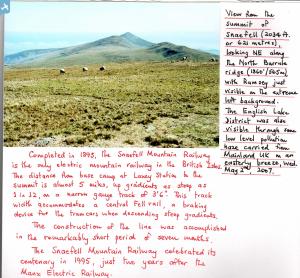 View from the
summit of
Snaefell (2034 ft.
or 621 metres),
looking NE along
the North Barrule
ridge (1860'/565m)
with Ramsey just
visible in the extreme
left background.
The English Lake
District was also
visible through some
low level pollution
haze carried from
Mainland UK on an
easterly breeze, Wed.
May 2nd 2007.
Completed in 1895, the Snaefell Mountain Railway
is the only electric mountain railway in the British Isles.
The distance from base camp at Laxey Station to the
summit is almost 5 miles, up gradients as steep as
1 in 12, on a narrow gauge track of 3'6". This track
width accommodates a central Fell rail, a braking
device for the tramcars when descending steep gradients.
The construction of the line was accomplished
in the remarkably short period of seven months.
The Snaefell Mountain Railway celebrated its
centenary in 1995, just two years after the
Manx Electric Railway.